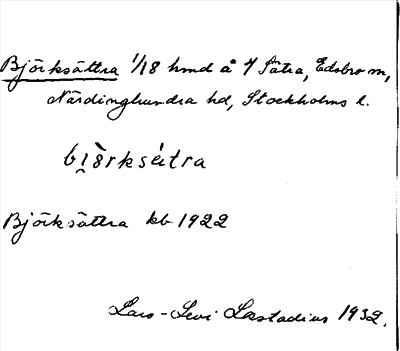 Björksättra 1/18 hmd å 4 Sätra, Edsbro sn,
Närdinghundra hd, Stockholms l.
bi̯ö̀rksätra
Björksättra kb 1922
Lars-Levi Læstadius 1932.